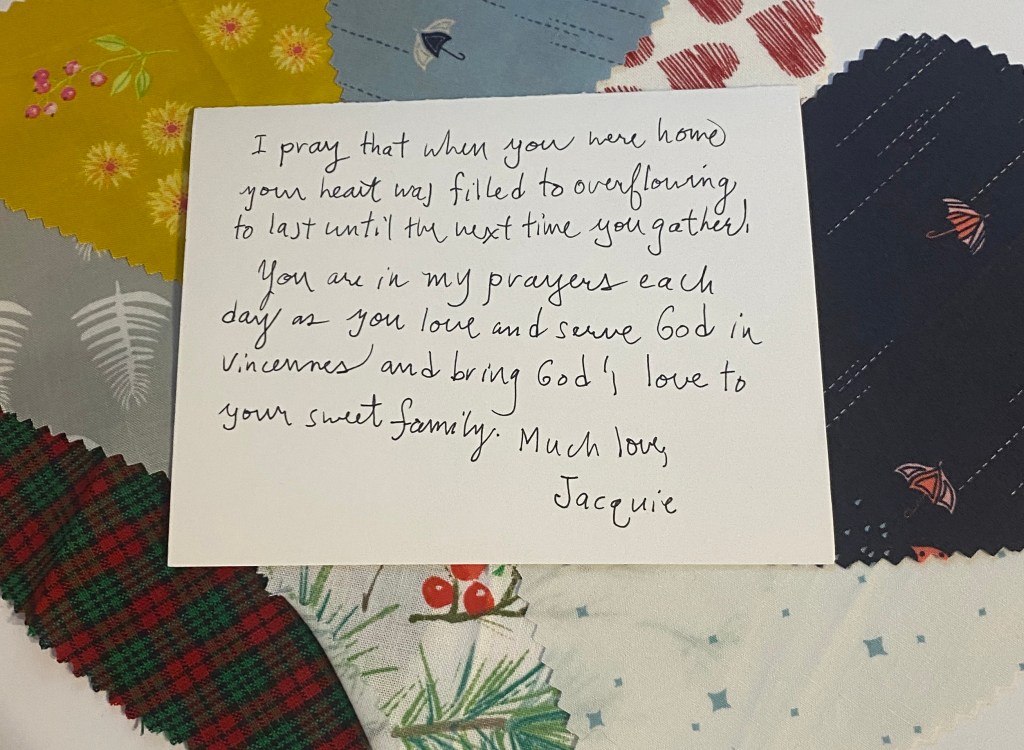 I pray that when you were home
your heart was filled to overflowing
to last until the next time you gather!
You are in my prayers each
day as you love and serve God in
Vincennes and bring God's love to
your sweet family. Much love,
Jacquie